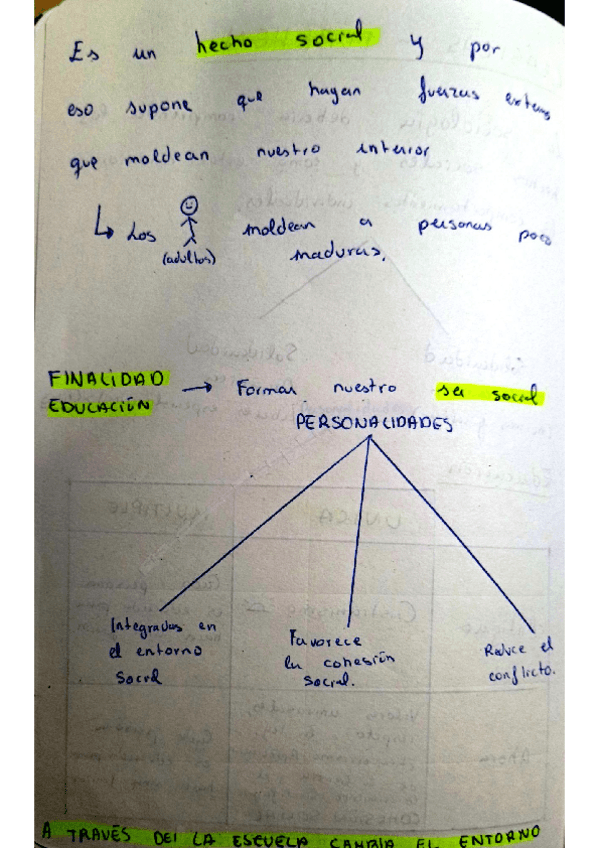 Es un hecho social y por
eso supone que hayan fuerzas externas
que moldean nuestro interior
↳ Los (adultos) moldean a personas poco
maduras.
FINALIDAD
EDUCACIÓN → Formar nuestro ser social
PERSONALIDADES
Integradas en
el entorno
social
Favorece
la cohesión
social.
Reduce el
conflicto.
A TRAVÉS DEl LA ESCUELA CAMBIA EL ENTORNO